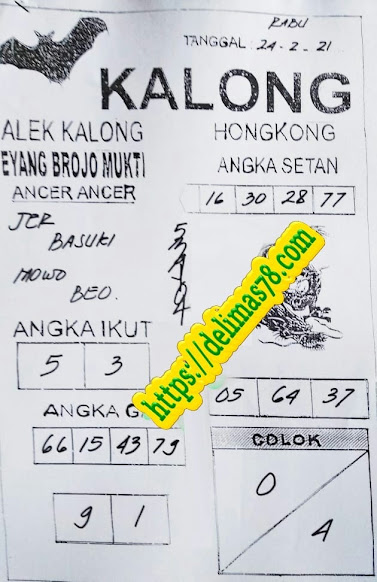 RABU
TANGGAL : 24 - 2 - 21
KALONG
ALEK KALONG
EYANG BROJO MUKTI
ANCER ANCER
JCR
BASUKI
MOWO
BEO.
ANGKA IKUT
5 3
ANGKA G
66 15 43 79
9 1
HONGKONG
ANGKA SETAN
16 30 28 77
https://delimas78.com
05 64 37
COLOK
0
4